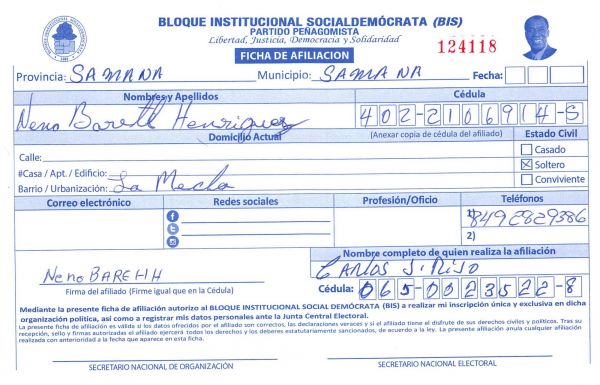 BLOQUE INSTITUCIONAL SOCIALDEMÓCRATA (BIS)
PARTIDO PEÑAGOMISTA
Libertad, Justicia, Democracia y Solidaridad
FICHA DE AFILIACION
124118
Provincia: SAMANA Municipio: SAMANA Fecha:
Nombres y Apellidos Cédula
Neno Baret Henriquez 402-2106914-5
Domicilio Actual (Anexar copia de cédula del afiliado) Estado Civil
Calle: Casado
#Casa / Apt. / Edificio: Soltero
Barrio / Urbanización: La Mecla Conviviente
Correo electrónico Redes sociales Profesión/Oficio Teléfonos
1) 849 2829386
2)
Nombre completo de quien realiza la afiliación
CARLOS J. RIJO
Neno BARETH
Firma del afiliado (Firme igual que en la Cédula) Cédula: 065-0023522-8
Mediante la presente ficha de afiliación autorizo al BLOQUE INSTITUCIONAL SOCIAL DEMÓCRATA (BIS) a realizar mi inscripción única y exclusiva en dicha
organización política, así como a registrar mis datos personales ante la Junta Central Electoral.
La presente ficha de afiliación es válida si los datos ofrecidos por el afiliado son correctos, las declaraciones veraces y si el afiliado tiene el disfrute de sus derechos civiles y políticos. Tras su
recepción, sello y firmas autorizadas el afiliado ejercerá todos los derechos y los deberes estatutariamente sancionados, de acuerdo a la ley. La presente afiliación anula cualquier afiliación
realizada con anterioridad a la fecha que aparece en esta ficha.
SECRETARIO NACIONAL DE ORGANIZACIÓN SECRETARIO NACIONAL ELECTORAL